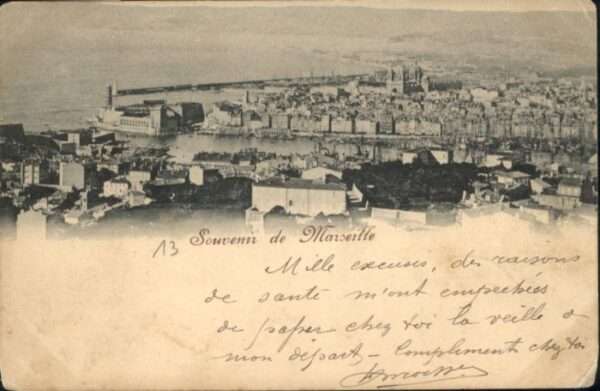 13
Souvenir de Marseille
Mille excuses, des raisons
de santé m'ont empechées
de paper chez toi la veille de
mon départ - Compliments chez toi